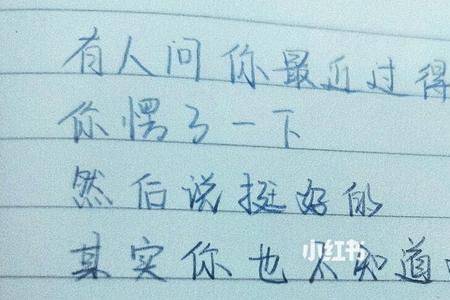 有人问你最近过得
你愣了一下
然后说挺好的
其实你也不知道
小红书